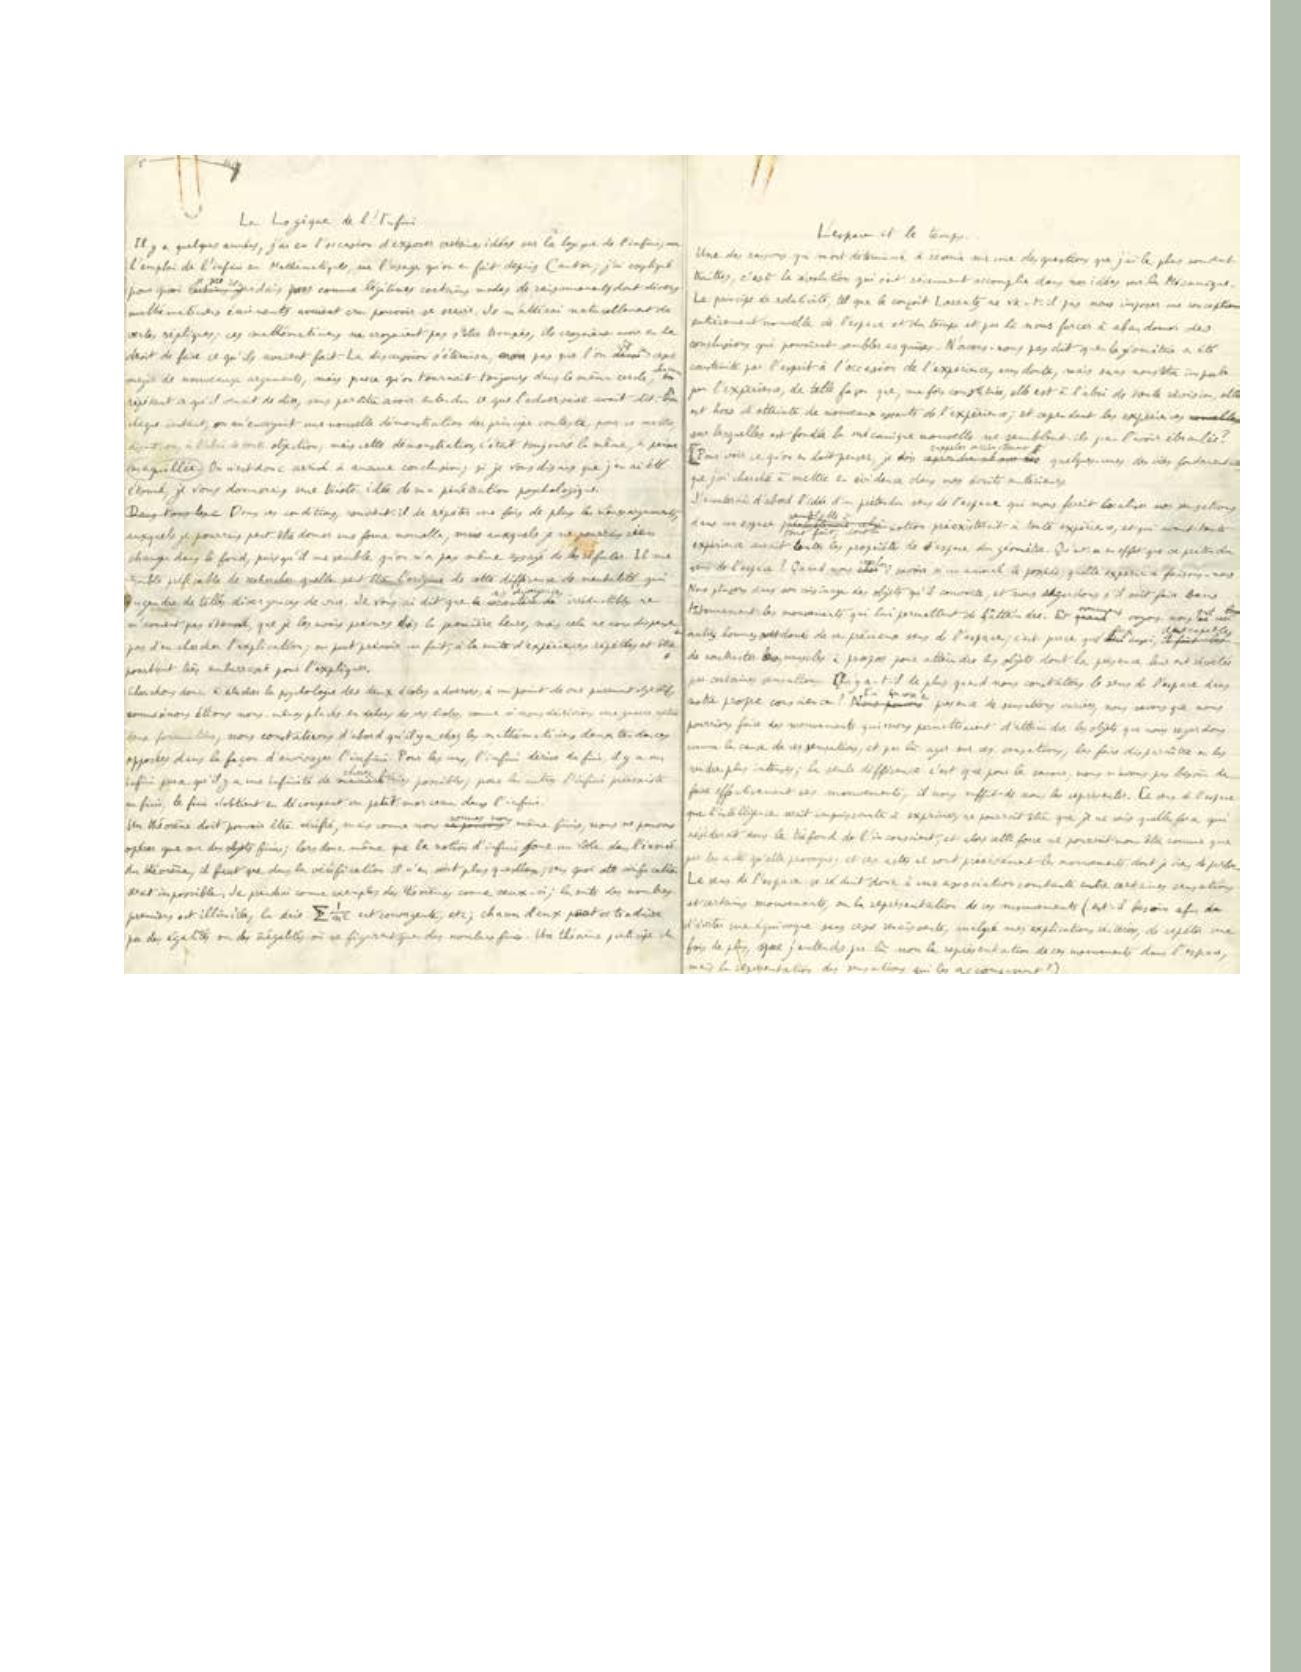 La Logique de l'Infini
Il y a quelques années, j'ai eu l'occasion d'exposer certaines idées sur la logique de l'infini; sur
l'emploi de l'infini en Mathématiques, sur l'usage qu'on en fait depuis Cantor; j'ai expliqué
pourquoi je ne regardais pas comme légitimes certains modes de raisonnements dont divers
mathématiciens éminents avaient cru pouvoir se servir. Je m'attirai naturellement de
vertes répliques; ces mathématiciens ne croyaient pas s'être trompés, ils croyaient avoir eu le
droit de faire ce qu'ils avaient fait. La discussion s'éternisa, non pas que l'on vît sans
surgir de nouveaux arguments, mais parce qu'on tournait toujours dans le même cercle, chacun
répétant ce qu'il venait de dire, sans paraître avoir entendu ce que l'adversaire avait dit. A
chaque instant, on m'envoyait une nouvelle démonstration du principe contesté, pour se mettre,
disait-on, à l'abri de toute objection; mais cette démonstration, c'était toujours la même, à peine
maquillée. On n'est donc arrivé à aucune conclusion; si je vous disais que j'en ai été
étonné, je vous donnerais une triste idée de ma pénétration psychologique.
Dans ces conditions, convient-il de répéter une fois de plus les mêmes arguments,
auxquels je pourrais peut-être donner une forme nouvelle, mais auxquels je ne pourrais rien
changer dans le fond, puisqu'il me semble qu'on n'a pas même essayé de les réfuter. Il me
semble préférable de rechercher quelle peut être l'origine de cette différence de mentalité qui
engendre de telles divergences de vue. Je vous ai dit que ces divergences irréductibles ne
m'avaient pas étonné, que je les avais prévues dès la première heure, mais cela ne nous dispense
pas d'en chercher l'explication; on peut prévoir un fait, à la suite d'expériences répétées et être
pourtant très embarrassé pour l'expliquer.
Cherchons donc à étudier la psychologie des deux écoles adverses, à un point de vue purement objectif,
comme si nous étions nous-mêmes placés en dehors de ces écoles, comme si nous décrivions une guerre entre
deux fourmilières; nous constaterons d'abord qu'il y a chez les mathématiciens deux tendances
opposées dans la façon d'envisager l'infini. Pour les uns, l'infini dérive du fini, il y a un
infini parce qu'il y a une infinité de choses finies possibles; pour les autres l'infini préexiste
au fini, le fini s'obtient en découpant un petit morceau dans l'infini.
Un théorème doit pouvoir être vérifié, mais comme nous sommes nous-mêmes finis, nous ne pouvons
opérer que sur des objets finis; lors donc même que la notion d'infini joue un rôle dans l'énoncé
du théorème, il faut que dans la vérification il n'en soit plus question; sans quoi cette vérification
serait impossible. Je prendrai comme exemples des théorèmes comme ceux-ci; la suite des nombres
premiers est illimitée, la série Σ 1/n² est convergente, etc; chacun d'eux peut se traduire
par des égalités ou des inégalités où ne figurent que des nombres finis. Un théorème participe de
L'espace et le temps.
Une des raisons qui m'ont déterminé à revenir sur une des questions que j'ai le plus souvent
traitées, c'est la révolution qui s'est récemment accomplie dans nos idées sur la Mécanique.
Le principe de relativité, tel que le conçoit Lorentz ne va-t-il pas nous imposer une conception
entièrement nouvelle de l'espace et du temps et par là nous forcer à abandonner des
conclusions qui pouvaient sembler acquises. N'avons-nous pas dit que la géométrie a été
construite par l'esprit à l'occasion de l'expérience, sans doute, mais sans nous être imposée
par l'expérience, de telle façon que, une fois constituée, elle est à l'abri de toute révision, elle
est hors d'atteinte de nouveaux assauts de l'expérience; et cependant les expériences
sur lesquelles est fondée la mécanique nouvelle ne semblent-ils pas l'avoir ébranlée?
[Pour voir ce qu'on en doit penser, je dois rappeler succinctement quelques-unes des idées fondamentales
que j'ai cherché à mettre en évidence dans mes écrits antérieurs.
J'écarterai d'abord l'idée d'un prétendu sens de l'espace qui nous ferait localiser nos sensations
dans un espace tout fait, dont la notion préexisterait à toute expérience, et qui avant toute
expérience aurait toutes les propriétés de l'espace du géomètre. Qu'est-ce en effet que ce prétendu
sens de l'espace? Quand nous voulons savoir si un animal le possède, quelle expérience faisons-nous.
Nous plaçons dans son voisinage des objets qu'il convoite, et nous regardons s'il sait faire sans
tâtonnement les mouvements qui lui permettent de l'atteindre. Et comment voyons-nous que les
autres hommes sont doués de ce précieux sens de l'espace; c'est parce que eux aussi, sont capables
de contracter les muscles à propos pour atteindre les objets dont la présence leur est révélée
par certaines sensations. Qu'y a-t-il de plus quand nous constatons le sens de l'espace dans
notre propre conscience? Ici encore, en présence de sensations variées, nous savons que nous
pourrions faire des mouvements qui nous permettraient d'atteindre les objets que nous regardons
comme la cause de ces sensations, et par là agir sur ces sensations, les faire disparaître ou les
rendre plus intenses; la seule différence c'est que pour le savoir, nous n'avons pas besoin de
faire effectivement ces mouvements, il nous suffit de nous les représenter. Ce sens de l'espace
que l'intelligence serait impuissante à exprimer, ne pourrait être que je ne sais quelle force qui
résiderait dans le tréfond de l'inconscient, et alors cette force ne pourrait nous être connue que
par les actes qu'elle provoque; et ces actes ce sont précisément les mouvements dont je viens de parler.
Le sens de l'espace se réduit donc à une association constante entre certaines sensations
et certains mouvements, ou la représentation de ces mouvements (est-il besoin afin de
d'éviter une équivoque sans cesse renaissante, malgré mes explications réitérées, de répéter une
fois de plus, que j'entends par là non la représentation de ces mouvements dans l'espace,
mais la représentation des sensations qui les accompagnent?)